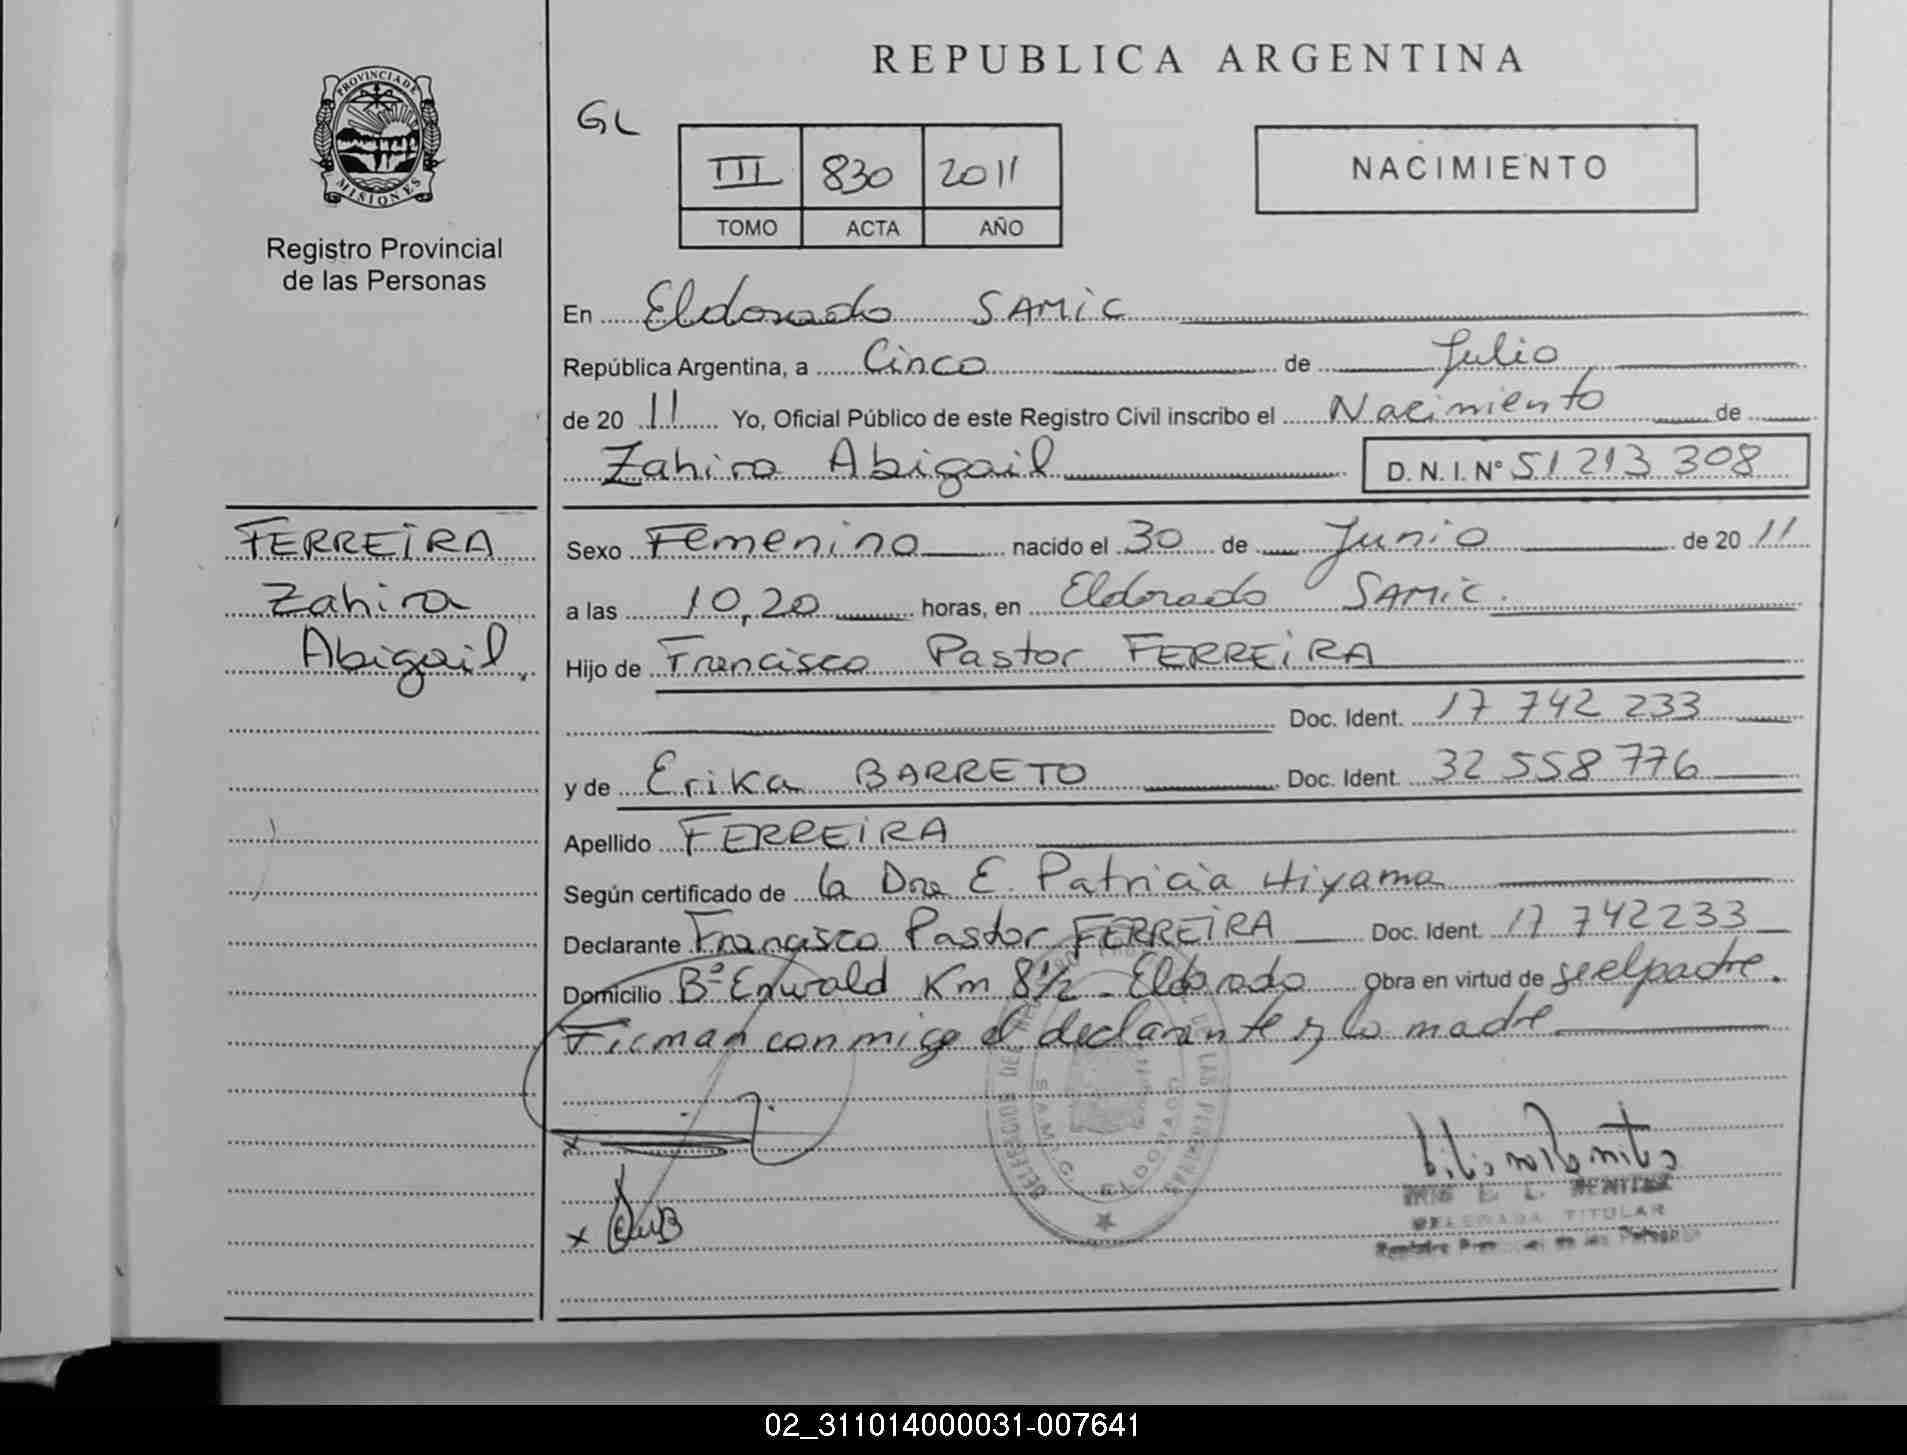 REPUBLICA ARGENTINA
PROVINCIA DE
MISIONES
Registro Provincial
de las Personas
GL
III 830 2011
TOMO ACTA AÑO
NACIMIENTO
En Eldorado SAMiC
República Argentina, a Cinco de Julio
de 20 11 Yo, Oficial Público de este Registro Civil inscribo el Nacimiento de
Zahira Abigail D. N. I. Nº 51 213 308
FERREiRA
Zahira
Abigail.
Sexo Femenino nacido el 30 de Junio de 20 11
a las 10,20 horas, en Eldorado SAMiC.
Hijo de Francisco Pastor FERREiRA
Doc. Ident. 17 742 233
y de Erika BARRETO Doc. Ident. 32 558 776
Apellido FERREiRA
Según certificado de la Dra E. Patricia Hiyama
Declarante Francisco Pastor FERREiRA Doc. Ident. 17 742233
Domicilio Bº Km 8½ - Eldorado Obra en virtud de ser el padre.
Firman conmigo el declarante y la madre
x
x
S.A.M.I.C. ELDORADO
E. L. BENITEZ
DELEGADA TITULAR
02_311014000031-007641